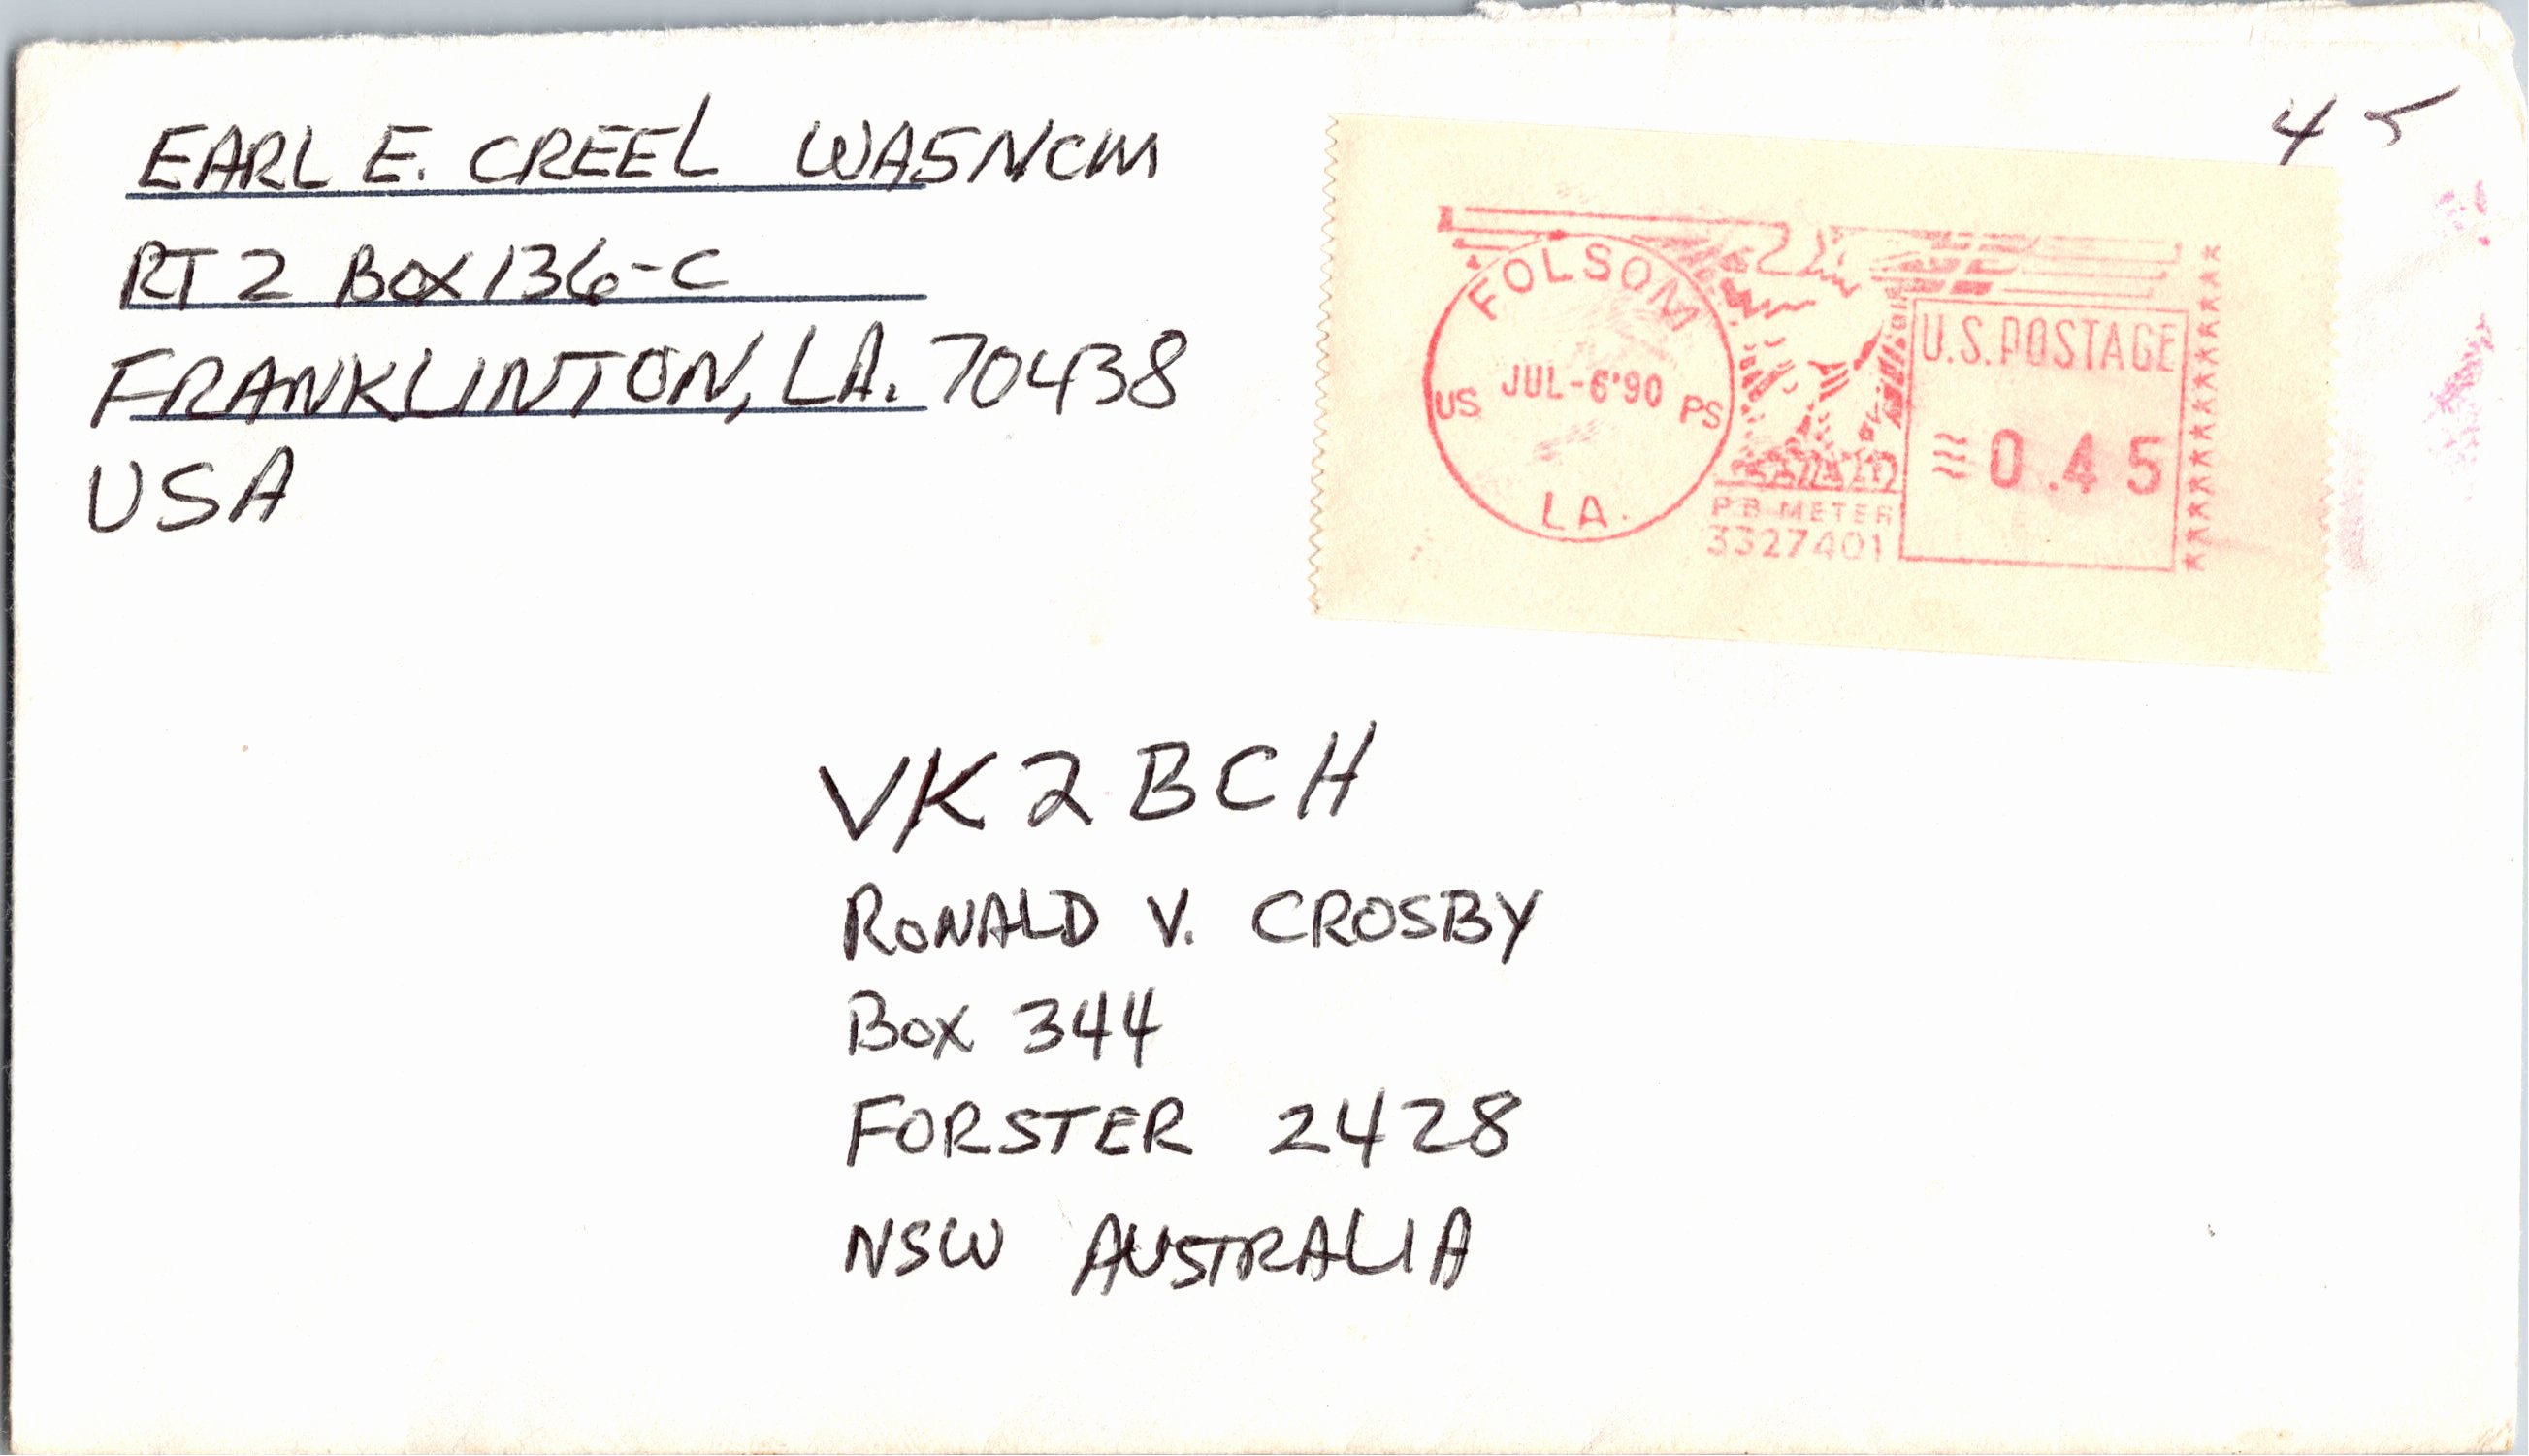 EARL E. CREEL WA5NCM
RT 2 BOX 136-C
FRANKLINTON, LA. 70438
USA
45
FOLSOM
US JUL-6'90 PS
LA.
P.B. METER
3327401
U.S. POSTAGE
0.45
VK2BCH
RONALD V. CROSBY
BOX 344
FORSTER 2428
NSW AUSTRALIA